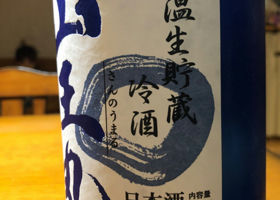 温生貯蔵
冷酒
さんのうまる
山王丸
日本酒 内容量